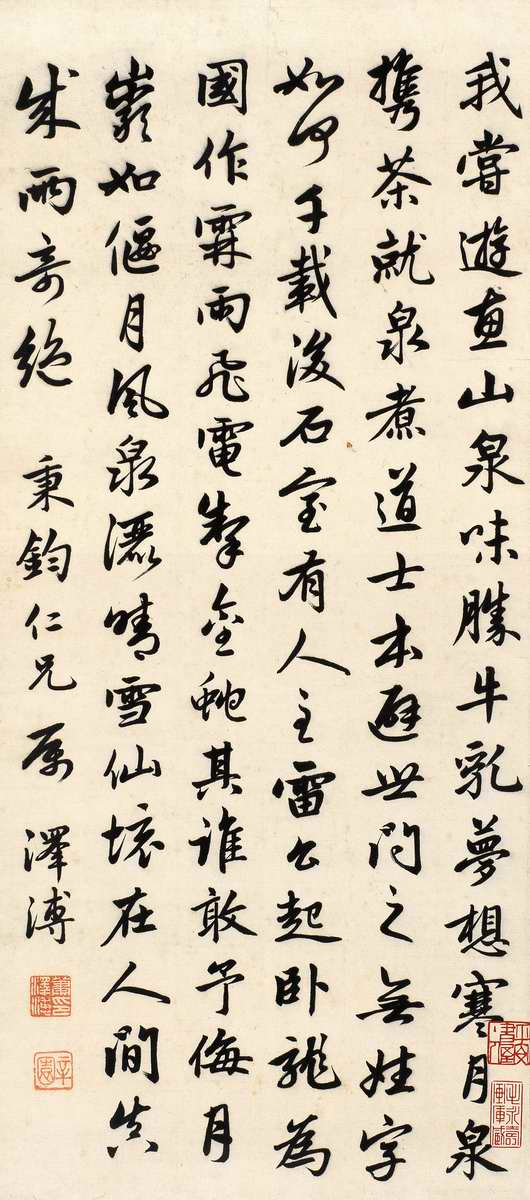 我嘗遊惠山泉味勝牛乳夢想寒月泉
携茶就泉煮道士本避世問之無姓字
如何千載後石室有人主雷公起卧龍為
國作霖雨飛電掣金蛇其誰敢予侮月
巖如偃月風泉灑晴雪仙境在人間真
成兩奇絕
秉鈞仁兄属
澤溥